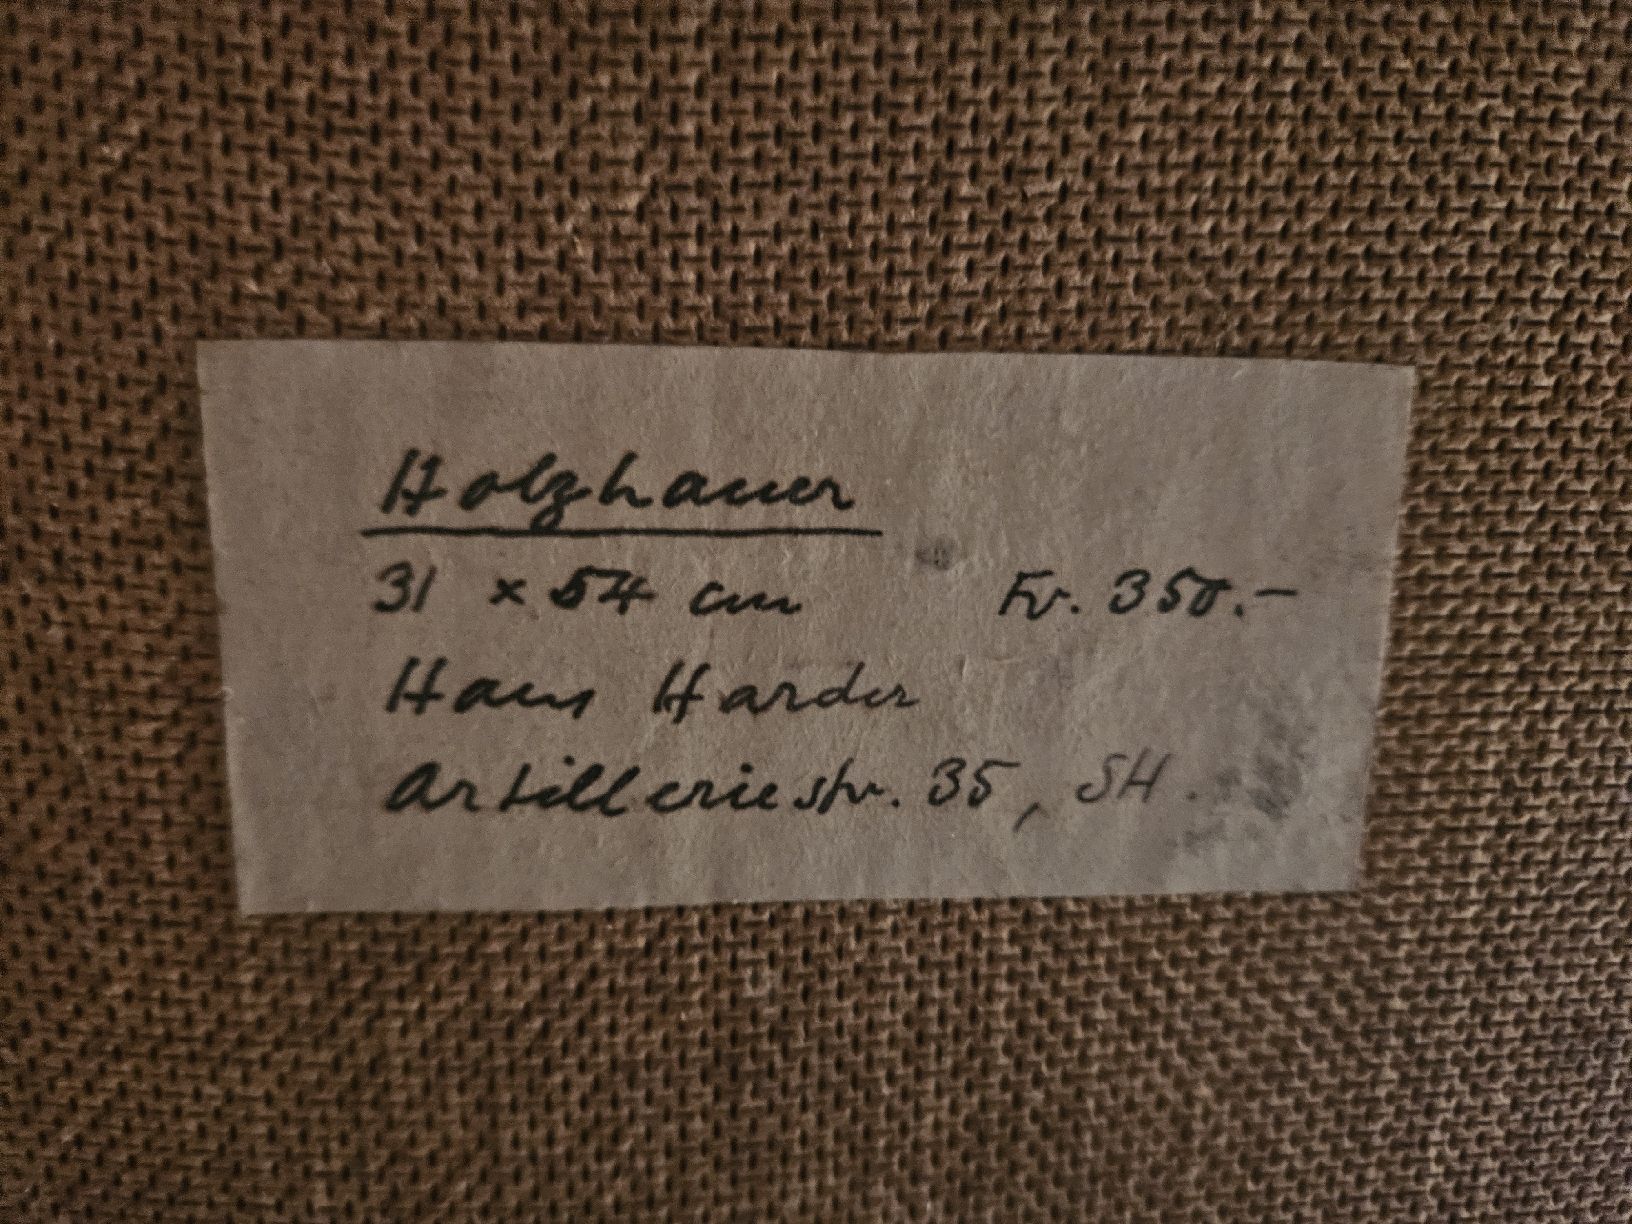 Holzhauer
31 x 54 cm Fr. 350.-
Hans Harder
Artilleriestr. 35, SH.